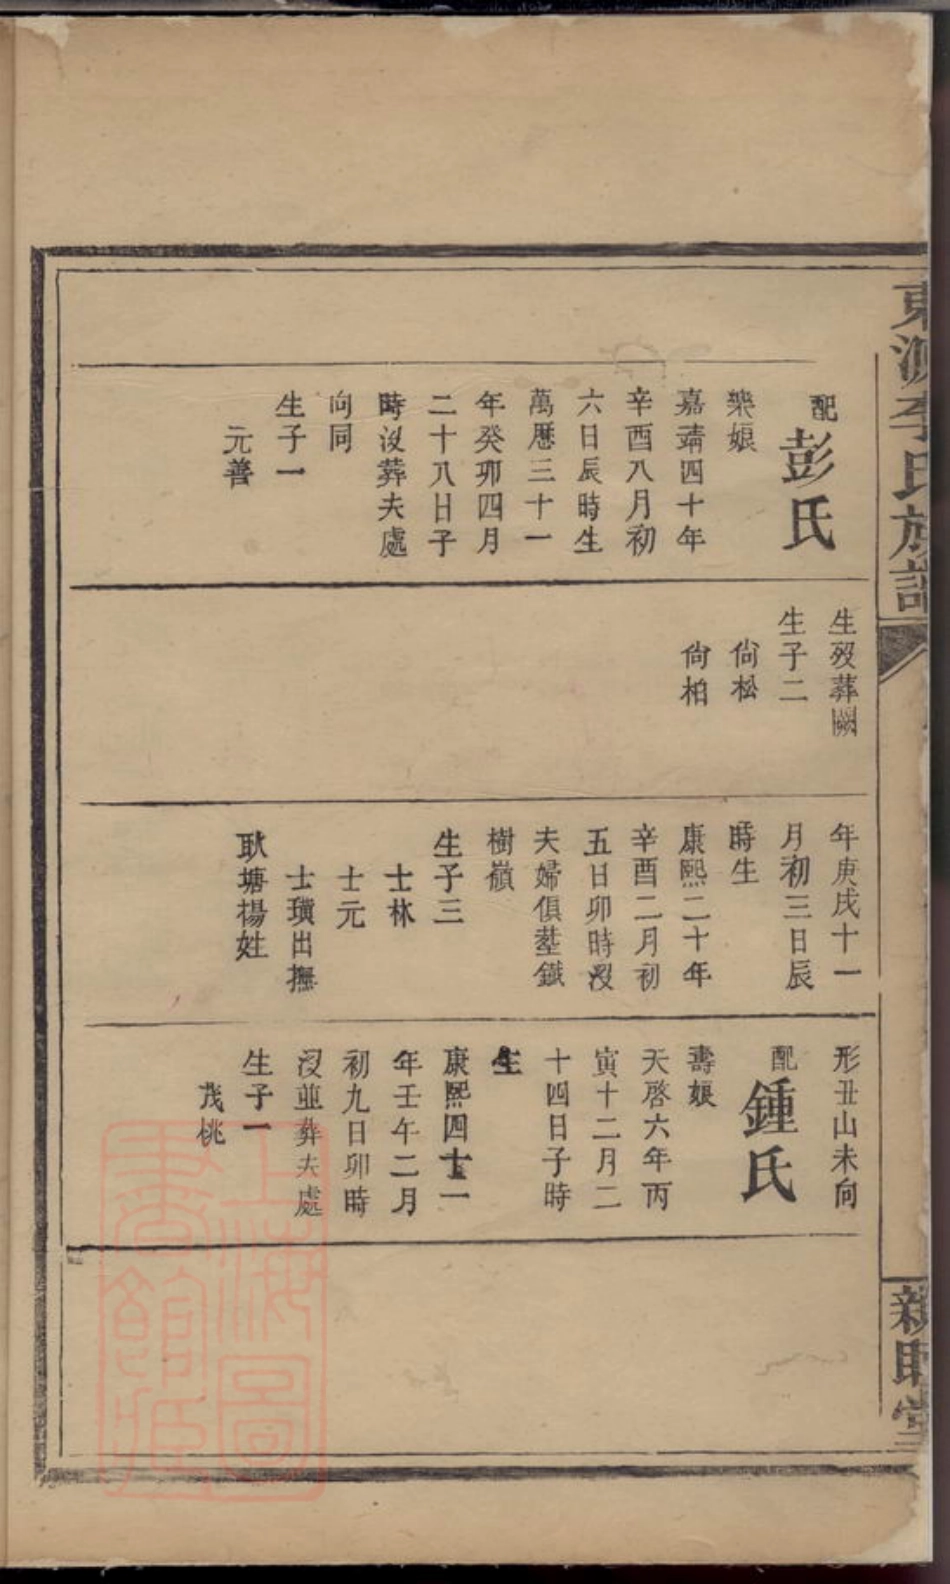 東源李氏族譜
新町堂
配彭氏
樂娘
嘉靖四十年
辛酉八月初
六日辰時生
萬曆三十一
年癸卯四月
二十八日子
時沒葬夫處
向同
生子一
元善
生歿葬闕
生子二
尙松
尙柏
年庚戌十一
月初三日辰
時生
康熙二十年
辛酉二月初
五日卯時沒
夫婦俱塟鐵
樹嶺
生子三
士林
士元
士璜出撫
耿塘楊姓
形丑山未向
配鍾氏
壽娘
天啓六年丙
寅十二月二
十四日子時
生
康熙四十一
年壬午二月
初九日卯時
沒並葬夫處
生子一
茂桃
上海圖
書館藏